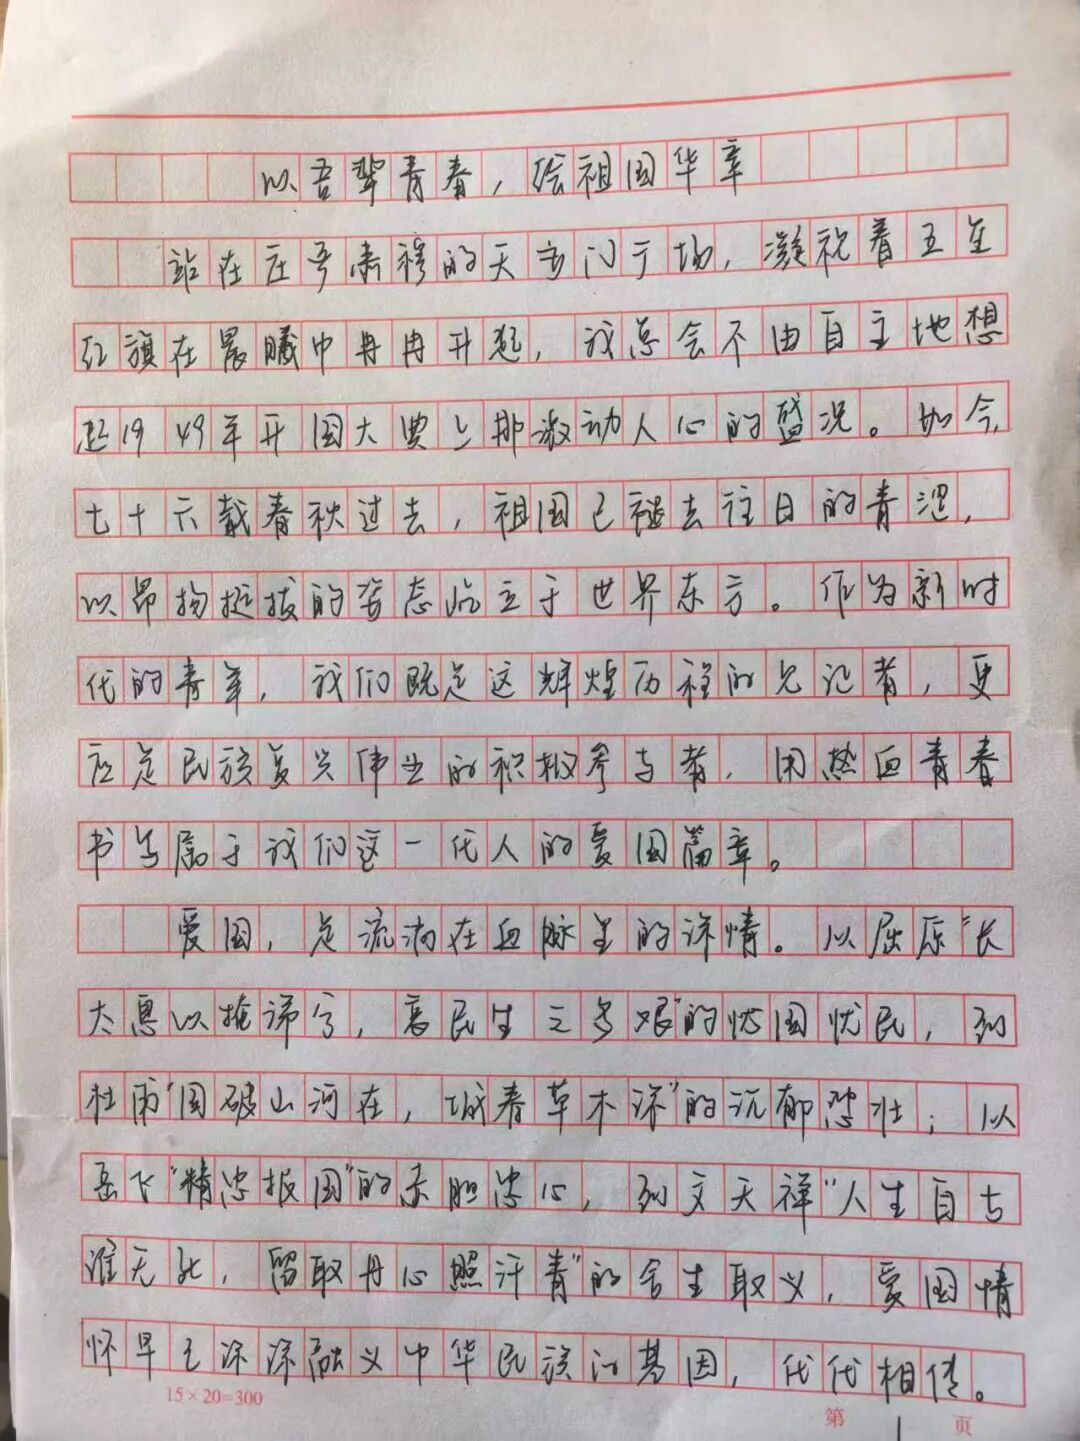 以吾辈青春，绘祖国华章
站在庄严肃穆的天安门广场，凝视着五星
红旗在晨曦中冉冉升起，我总会不由自主地想
起1949年开国大典上那激动人心的盛况。如今，
七十六载春秋过去，祖国已褪去往日的青涩，
以昂扬挺拔的姿态屹立于世界东方。作为新时
代的青年，我们既是这辉煌历程的见证者，更
应是民族复兴伟业的积极参与者，用热血青春
书写属于我们这一代人的爱国篇章。
爱国，是流淌在血脉里的深情。从屈原"长
太息以掩涕兮，哀民生之多艰"的忧国忧民，到
杜甫"国破山河在，城春草木深"的沉郁悲壮；从
岳飞"精忠报国"的赤胆忠心，到文天祥"人生自古
谁无死，留取丹心照汗青"的舍生取义，爱国情
怀早已深深融入中华民族的基因，代代相传。
15×20=300
第 1 页